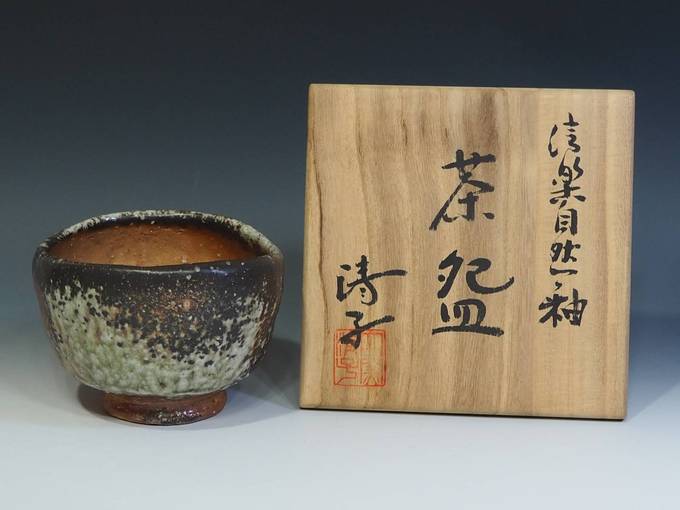 信楽自然釉
茶盌
清子